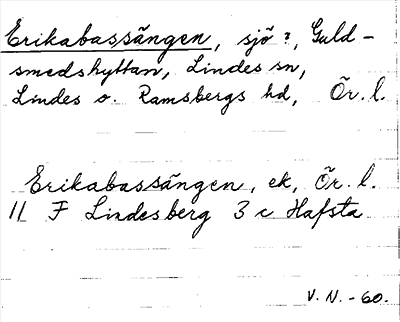 Erikabassängen, sjö?, Guld-
smedshyttan, Lindes sn,
Lindes o. Ramsbergs hd, Ör. l.
Erikabassängen, ek, Ör. l.
11 F Lindesberg 3 c Hafsta
V. N. - 60.